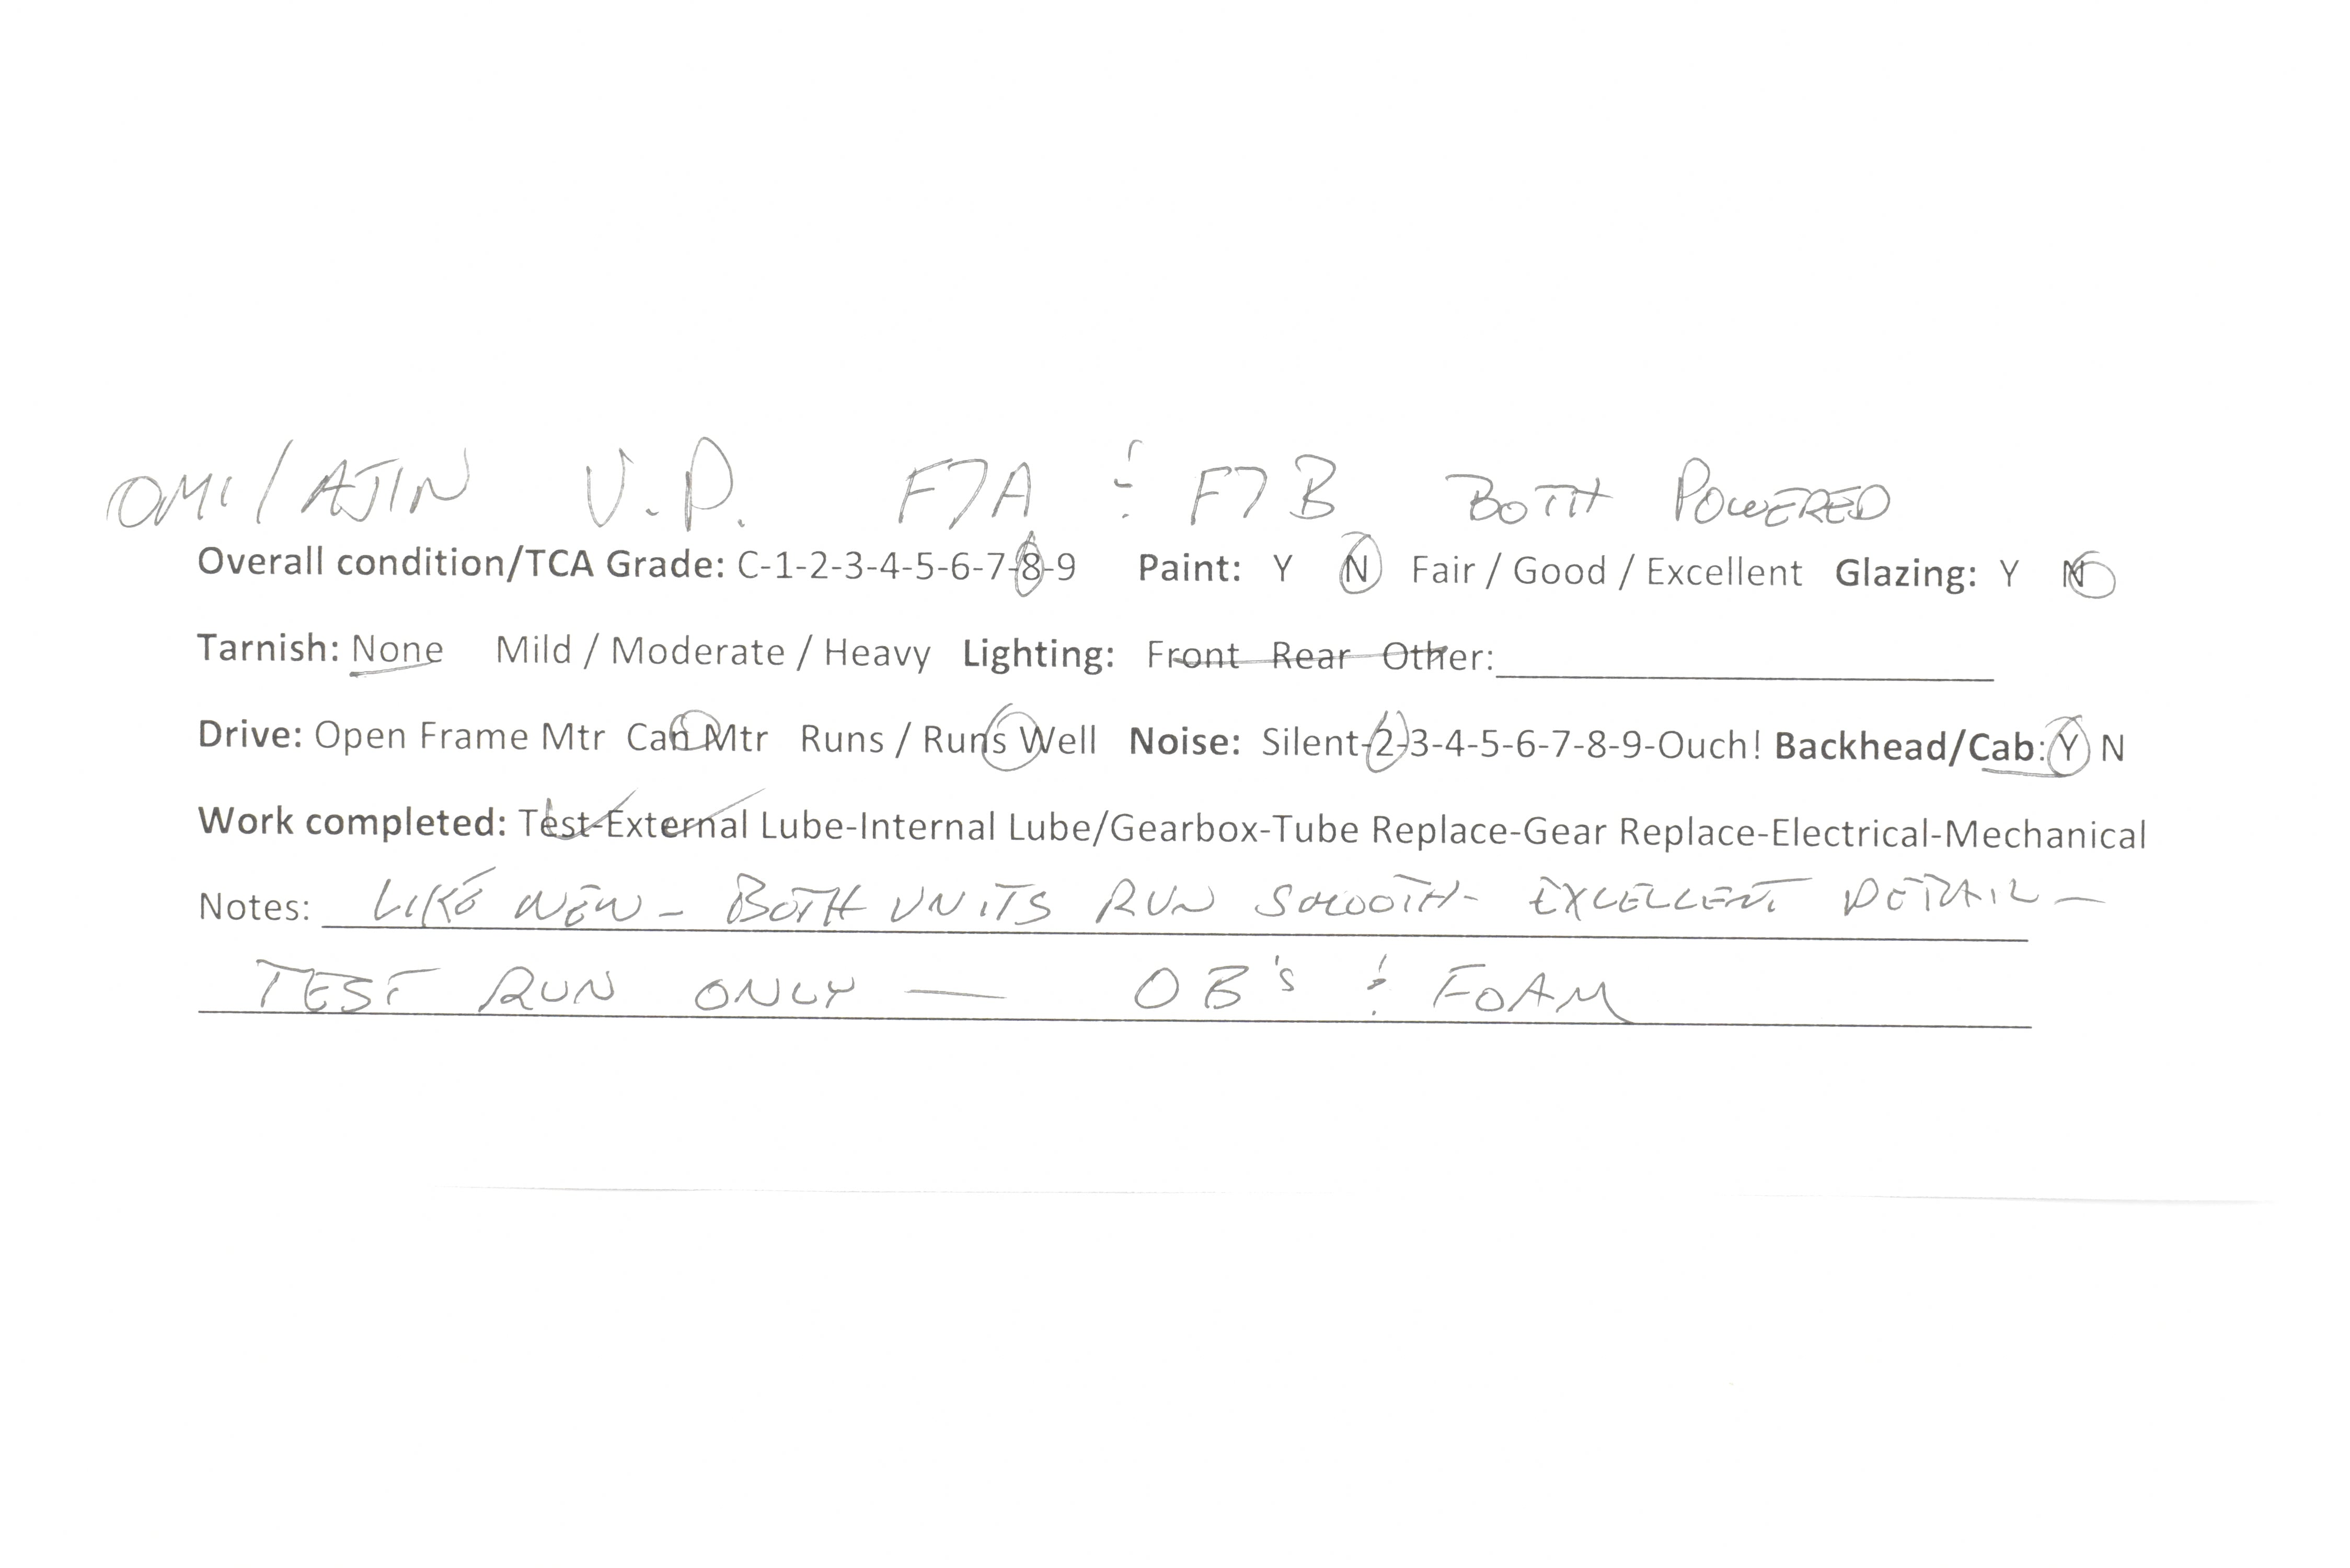 OMI/AJIN U.P. F7A & F7B BOTH POWERED
Overall condition/TCA Grade: C-1-2-3-4-5-6-7-8-9 Paint: Y N Fair / Good / Excellent Glazing: Y N
Tarnish: None Mild / Moderate / Heavy Lighting: Front Rear Other:
Drive: Open Frame Mtr Can Mtr Runs / Runs Well Noise: Silent-2-3-4-5-6-7-8-9-Ouch! Backhead/Cab: Y N
Work completed: Test-External Lube-Internal Lube/Gearbox-Tube Replace-Gear Replace-Electrical-Mechanical
Notes: LIKE NEW - BOTH UNITS RUN SMOOTH - EXCELLENT DETAIL -
TEST RUN ONLY — OB's & FOAM